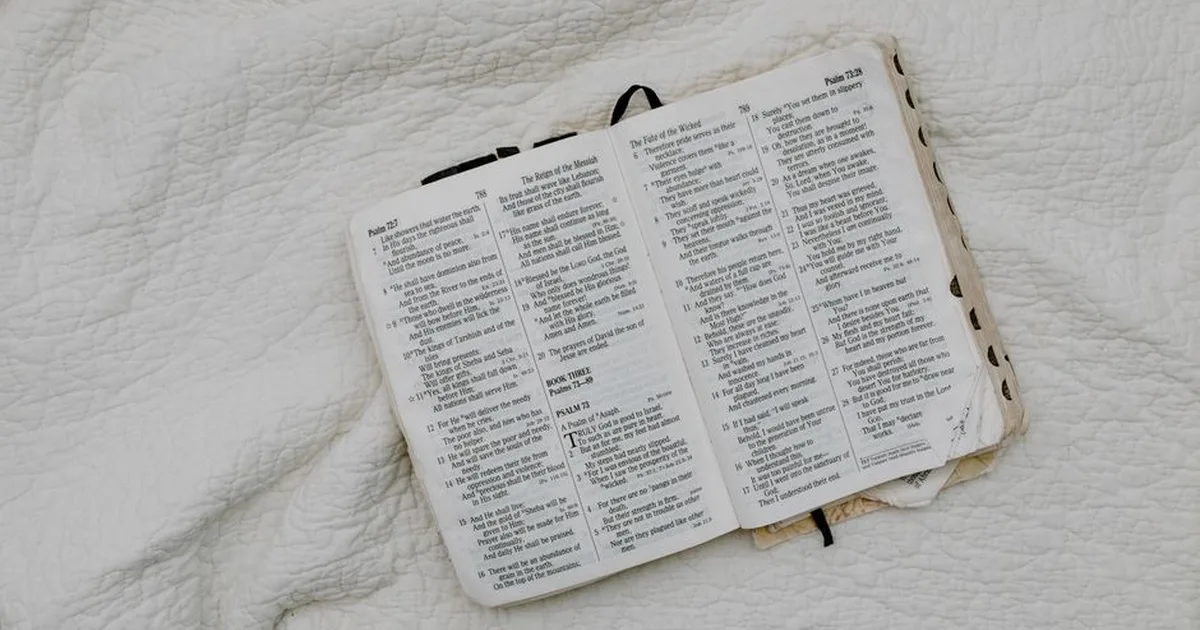 Psalm 72:7
788
The Reign of the Messiah
Like showers that water the earth.
7 In His days the righteous shall
flourish,
And abundance of peace,
Until the moon is no more.
8 He shall have dominion also from
sea to sea,
And from the River to the ends of
the earth.
9 Those who dwell in the wilderness
will bow before Him,
And His enemies will lick the
dust.
10 The kings of Tarshish and of the
isles
Will bring presents;
The kings of Sheba and Seba
Will offer gifts.
11 Yes, all kings shall fall down
before Him;
All nations shall serve Him.
12 For He will deliver the needy
when he cries,
The poor also, and him who has
no helper.
13 He will spare the poor and needy,
And will save the souls of the
needy.
14 He will redeem their life from
oppression and violence;
And precious shall be their blood
in His sight.
15 And He shall live;
And the gold of Sheba will be
given to Him;
Prayer also will be made for Him
continually,
And daily He shall be praised.
16 There will be an abundance of
grain in the earth,
On the top of the mountains;
Its fruit shall wave like Lebanon;
And those of the city shall flourish
like grass of the earth.
17 His name shall endure forever;
His name shall continue as long
as the sun.
And men shall be blessed in Him;
All nations shall call Him blessed.
18 Blessed be the LORD God, the God
of Israel,
Who only does wondrous things!
19 And blessed be His glorious
name forever!
And let the whole earth be filled
with His glory.
Amen and Amen.
20 The prayers of David the son of
Jesse are ended.
BOOK THREE
Psalms 73—89
PSALM 73
A Psalm of Asaph.
TRULY God is good to Israel,
To such as are pure in heart.
2 But as for me, my feet had almost
stumbled;
My steps had nearly slipped.
3 For I was envious of the boastful,
When I saw the prosperity of the
wicked.
4 For there are no pangs in their
death,
But their strength is firm.
5 They are not in trouble as other
men,
Nor are they plagued like other
men.
The Fate of the Wicked
789
Psalm 73:28
6 Therefore pride serves as their
necklace;
Violence covers them like a
garment.
7 Their eyes bulge with
abundance;
They have more than heart could
wish.
8 They scoff and speak wickedly
concerning oppression;
They speak loftily.
9 They set their mouth against the
heavens,
And their tongue walks through
the earth.
10 Therefore his people return here,
And waters of a full cup are
drained by them.
11 And they say, "How does God
know?
And is there knowledge in the
Most High?"
12 Behold, these are the ungodly,
Who are always at ease;
They increase in riches.
13 Surely I have cleansed my heart
in vain,
And washed my hands in
innocence.
14 For all day long I have been
plagued,
And chastened every morning.
15 If I had said, "I will speak
thus,"
Behold, I would have been untrue
to the generation of Your
children.
16 When I thought how to
understand this,
It was too painful for me—
17 Until I went into the sanctuary of
God;
Then I understood their end.
18 Surely You set them in slippery
places;
You cast them down to
destruction.
19 Oh, how they are brought to
desolation, as in a moment!
They are utterly consumed with
terrors.
20 As a dream when one awakes,
So, Lord, when You awake,
You shall despise their image.
21 Thus my heart was grieved,
And I was vexed in my mind.
22 I was so foolish and ignorant;
I was like a beast before You.
23 Nevertheless I am continually
with You;
You hold me by my right hand.
24 You will guide me with Your
counsel,
And afterward receive me to
glory.
25 Whom have I in heaven but
You?
And there is none upon earth that
I desire besides You.
26 My flesh and my heart fail;
But God is the strength of my
heart and my portion forever.
27 For indeed, those who are far from
You shall perish;
You have destroyed all those who
desert You for harlotry.
28 But it is good for me to draw near
to God;
I have put my trust in the Lord
GOD,
That I may declare
works.